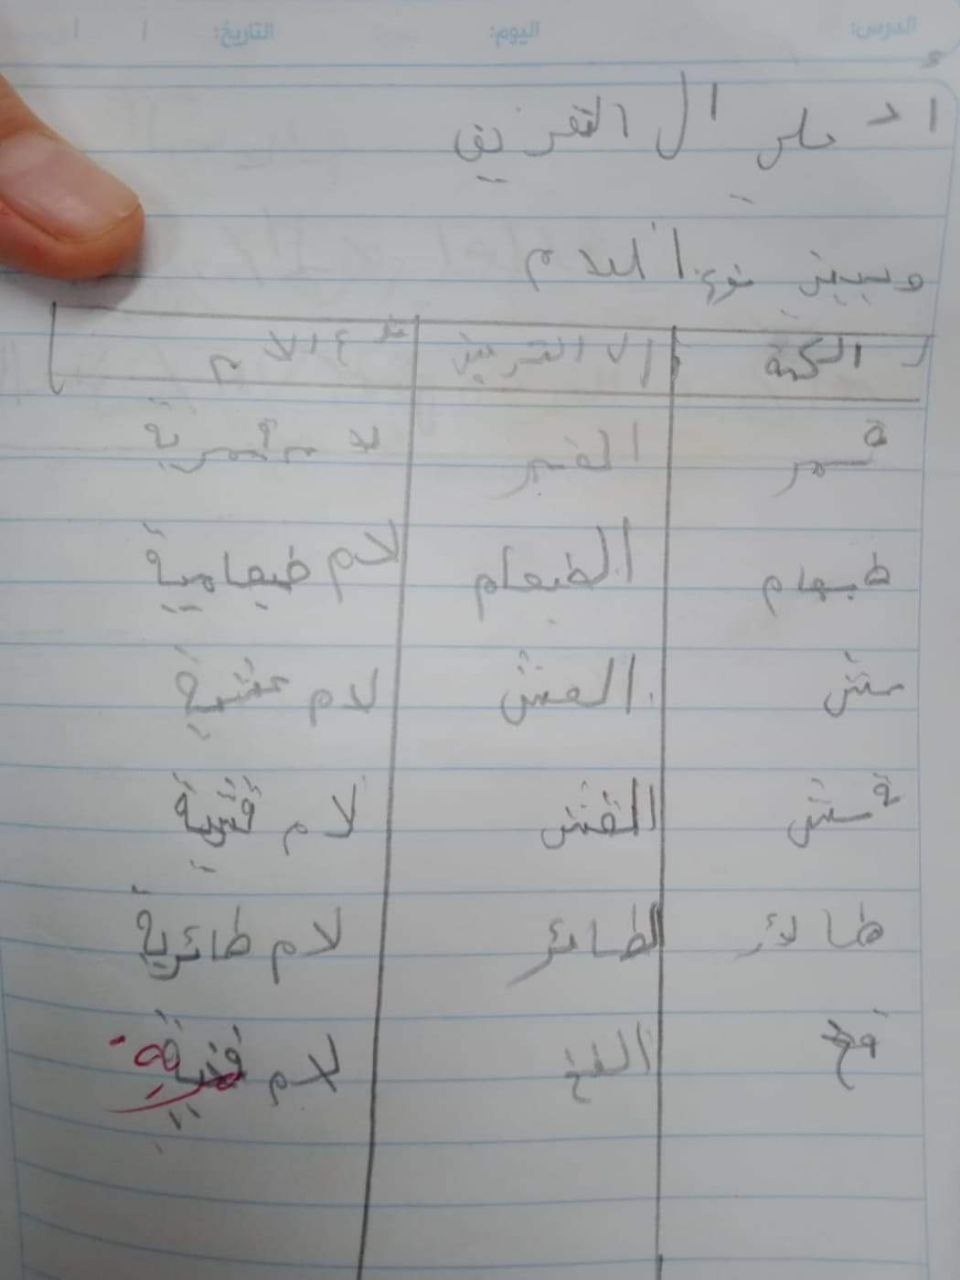 الدرس: اليوم: التاريخ: / /
ادخلي ال التعريف
وبيني نوع اللام
الكلمة ال التعريف نوع الام
قمر القمر لام قمرية
طعام الطعام لام طعامية
عش العش لام عشية
قش القش لام قشية
طائر الطائر لام طائرية
فخ الفخ لام